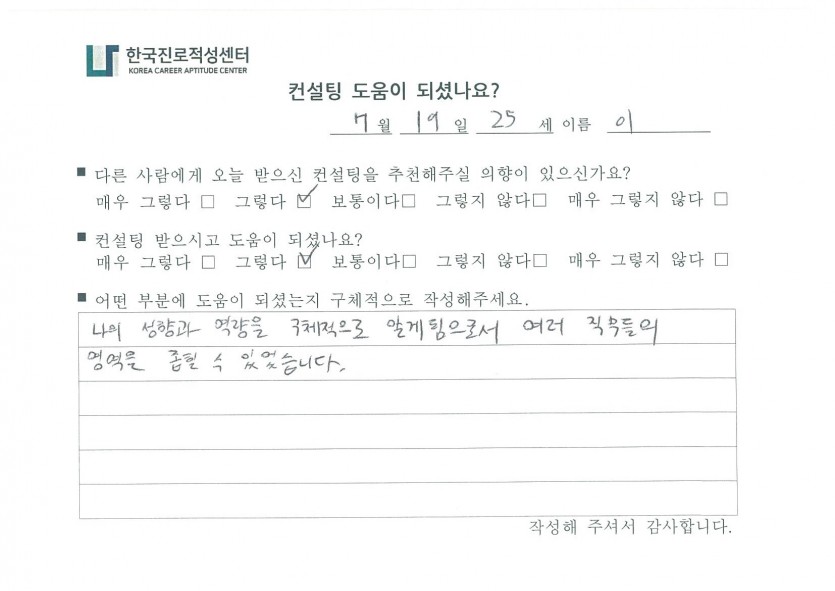 한국진로적성센터
KOREA CAREER APTITUDE CENTER
컨설팅 도움이 되셨나요?
7월 19일 25세 이름 이
■ 다른 사람에게 오늘 받으신 컨설팅을 추천해주실 의향이 있으신가요?
매우 그렇다 □ 그렇다 ☑ 보통이다□ 그렇지 않다□ 매우 그렇지 않다 □
■ 컨설팅 받으시고 도움이 되셨나요?
매우 그렇다 □ 그렇다 ☑ 보통이다□ 그렇지 않다□ 매우 그렇지 않다 □
■ 어떤 부분에 도움이 되셨는지 구체적으로 작성해주세요.
나의 성향과 역량을 구체적으로 알게됨으로서 여러 직무들의
영역을 좁힐 수 있었습니다.
작성해 주셔서 감사합니다.